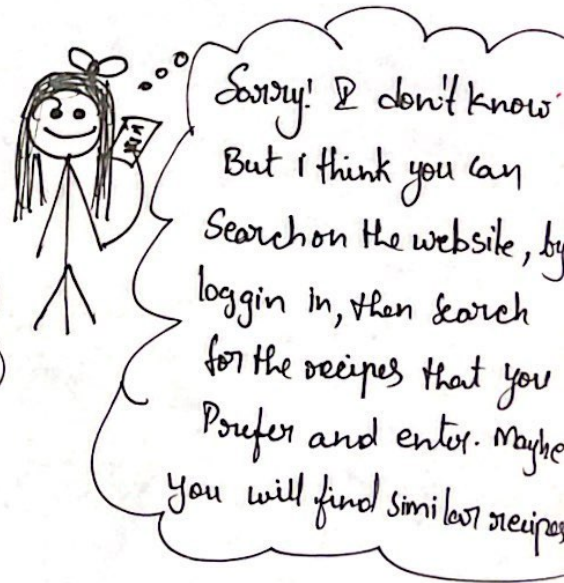 Sorry! I don't know
But i think you can
Search on the website, by
loggin in, then search
for the recipes that you
Prefer and enter. Maybe
you will find similar recipes